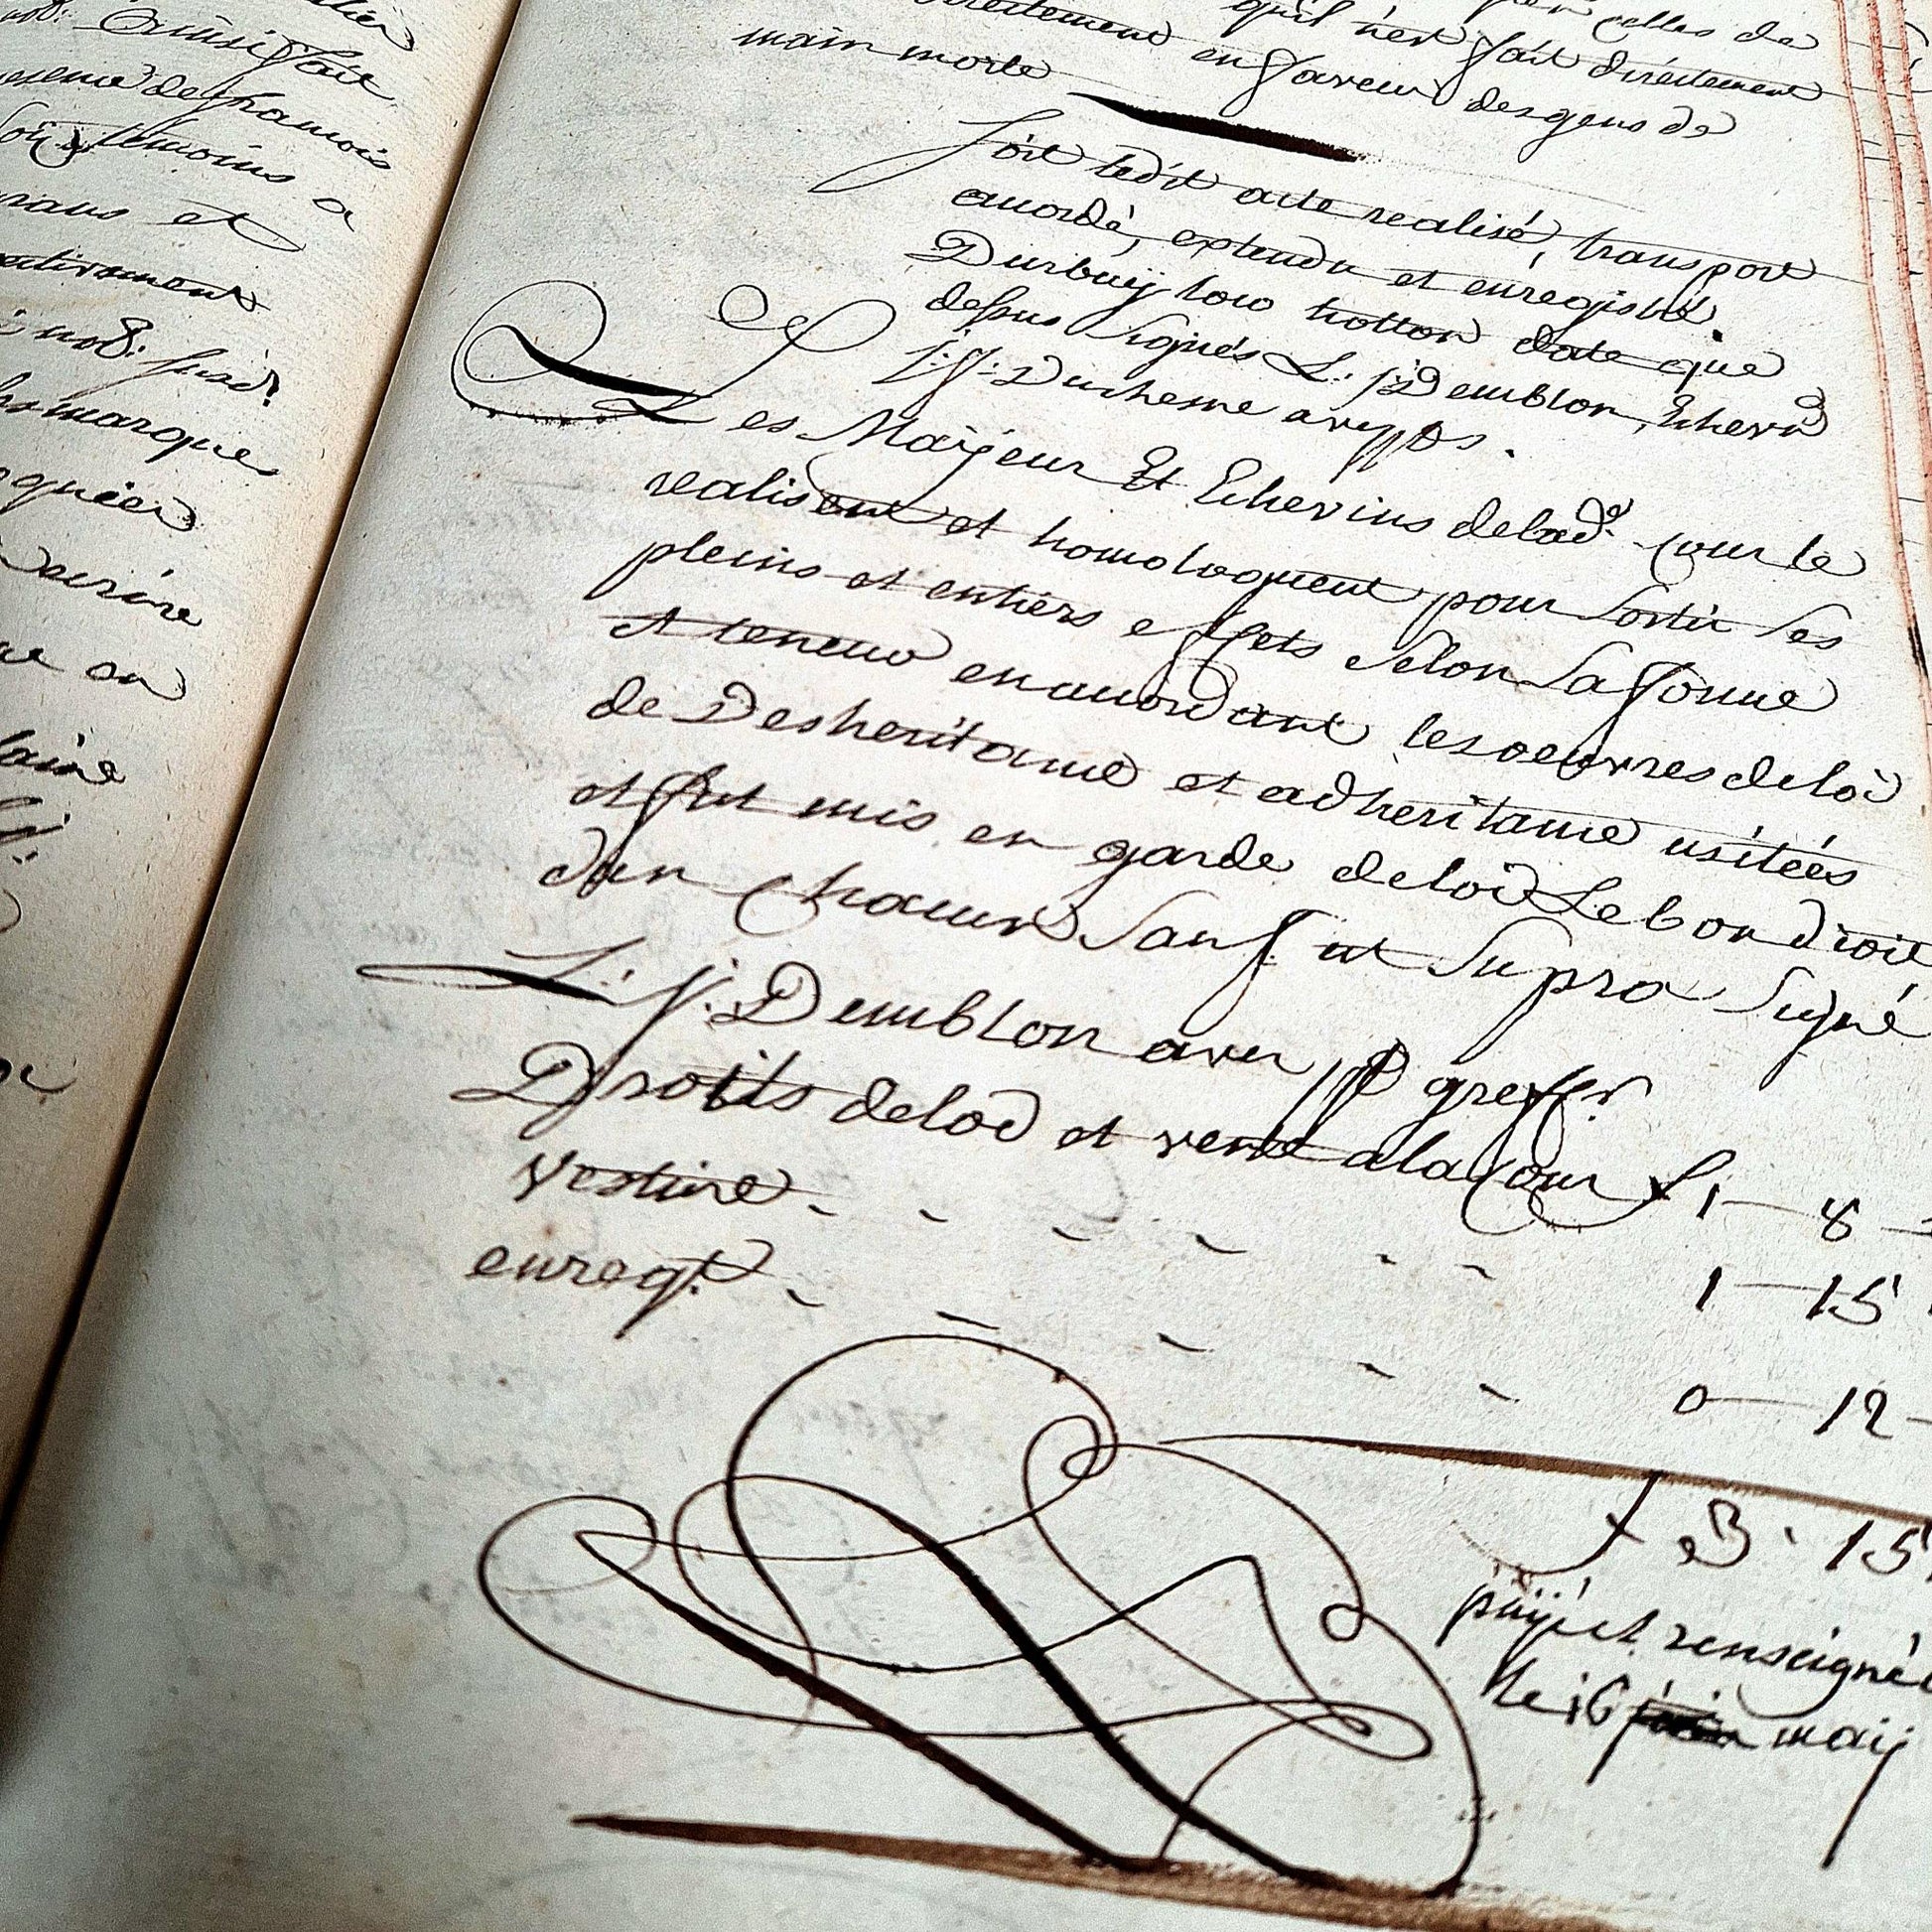 not: Ainsi fait
presence de francois
temoins a
et
not: susd:
marque
en
celles de
qu'il n'est fait directement
directement en faveur des gens de
main morte
soit ledit acte realisé, transport
accordé, extendu et enregistré.
Durbuÿ hotton date que
dessus signés L: J: Demblon, Echevin
J: J: Duchesne avec pps.
Les Maÿeur Et Echevins delad.e cour le
realisent et homologuent pour sortir ses
pleins et entiers effets selon sa forme
et teneur en accordant les oeuvres deloi
de Desheritance et adheritance usitées
et fut mis en garde deloi Le bon droit
d'un chacun sauf ut supra signé
L: J: Demblon avec pp greff.r
Droits delod et vent ala Cour f 1 — 8 —
vesture - - - - - - 1 — 15
enregt. - - - - - 0 — 12 —
f 3 · 15
paÿé et renseigné
le 16 maÿ